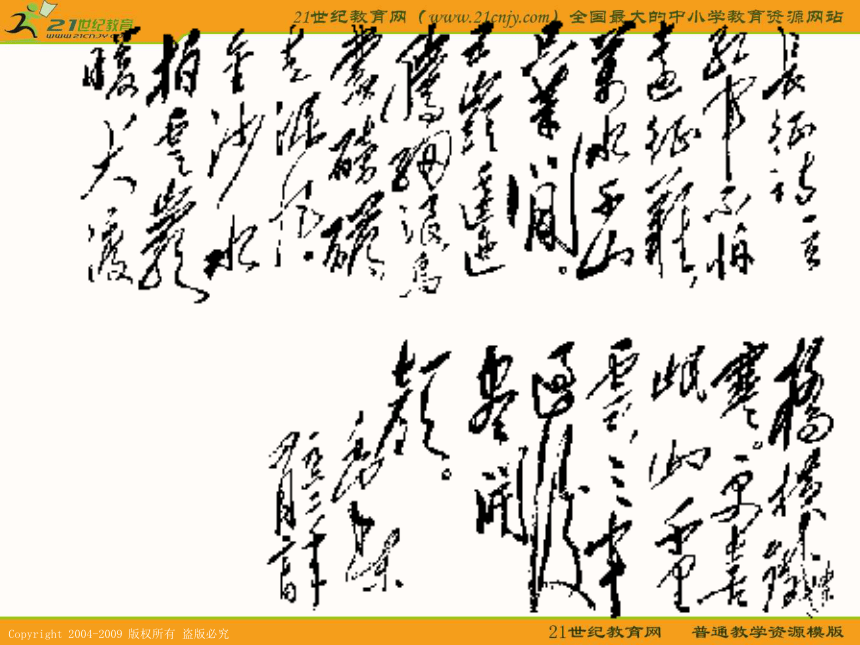 21世纪教育网
WWW.21CNJY.COM
21世纪教育网（www.21cnjy.com）全国最大的中小学教育资源网站
長征詩一首
紅軍不怕
遠征難，
萬水千山
只等閒。
五嶺逶迤
騰細浪烏
蒙磅礴
走泥丸。
金沙水
拍雲崖
暖大渡
橋橫鐵索
寒。更喜
岷山千里
雪，三軍
過後
盡開
顏。
毛澤東
Copyright 2004-2009 版权所有 盗版必究
21世纪教育网 普通教学资源模版